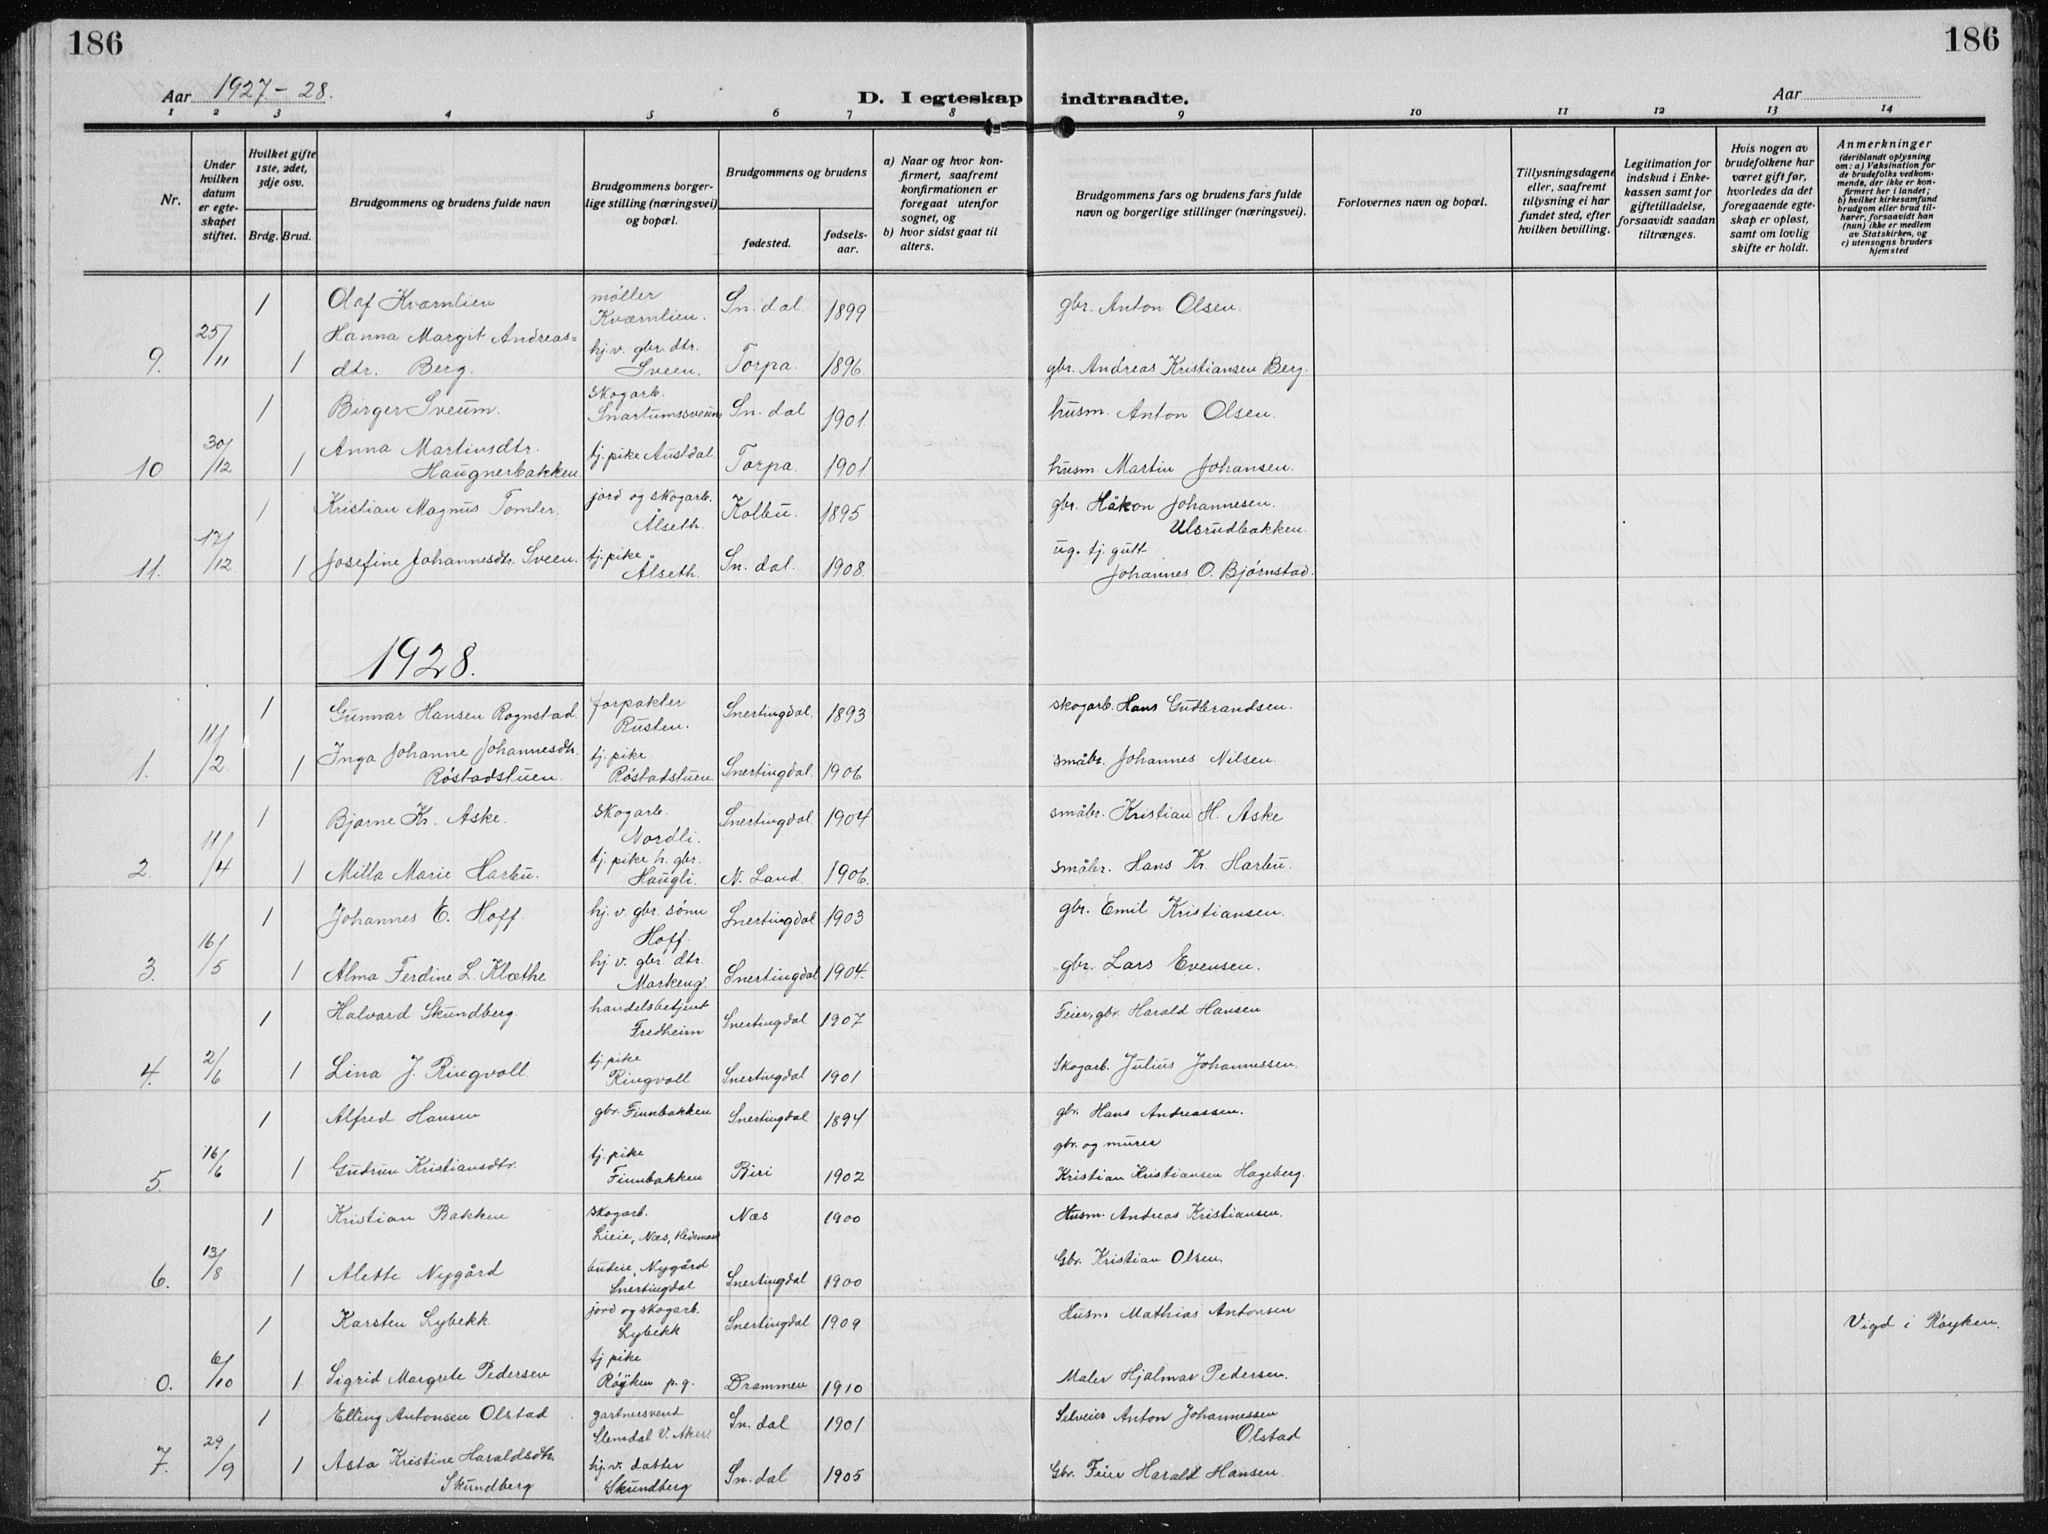 186
186
Aar 1927-28.
D. I egteskap indtraadte.
Aar
1 2 3 4 5 6 7 8 9 10 11 12 13 14
Nr.
Under hvilken datum er egte-skapet stiftet.
Hvilket gifte 1ste, 2det, 3dje osv.
Brdg. Brud.
Brudgommens og brudens fulde navn
Brudgommens borger-lige stilling (næringsvei) og bopæl.
Brudgommens og brudens
fødested.
fødsels-aar.
a) Naar og hvor kon-firmert, saafremt konfirmationen er foregaat utenfor sognet, og
b) hvor sidst gaat til alters.
Brudgommens fars og brudens fars fulde navn og borgerlige stillinger (næringsvei).
Forlovernes navn og bopæl.
Tillysningsdagene eller, saafremt tillysning ei har fundet sted, efter hvilken bevilling.
Legitimation for indskud i Enke-kassen samt for giftetilladelse, forsaavidt saadan tiltrænges.
Hvis nogen av brudefolkene har været gift før, hvorledes da det foregaaende egte-skap er opløst, samt om lovlig skifte er holdt.
Anmerkninger
(deriblandt oplysning om: a) Vaksination for de brudefolks vedkom-mende, der ikke er kon-firmert her i landet; b) hvilket kirkesamfund brudgom eller brud til-hører, forsaavidt han (hun) ikke er medlem av Statskirken, og c) utensogns bruders hjemsted
1 Olaf Kværnlien møller Kværnlien. Sn. dal. 1899 gbr. Anton Olsen.
9. 25/11 1 Hanna Margit Andreas=dtr. Berg. hj. v. gbr. dtr. Sveen. Torpa. 1896 gbr. Andreas Kristiansen Berg.
1 Birger Sveum. skogarb. Snartumssveum Sn. dal 1901 husm. Anton Olsen.
10 30/12 1 Anna Martinsdtr. Haugnerbakken. tj. pike Austdal. Torpa. 1901. husm. Martin Johansen.
1 Kristian Magnus Tomter. jord og skogarb. Ålseth. Kolbu. 1895 gbr. Håkon Johannesen. Ulsrudbakken.
11. 17/12 1 Josefine Johannesdtr. Sveen. tj. pike Ålseth. Sn. dal. 1908. ug. tj. gutt Johannes O. Bjørnstad.
1928.
1 Gunnar Hansen Rognstad. forpakter Rusten. Snertingdal. 1893 skogarb. Hans Gudbrandsen.
1. 11/2 1 Inga Johanne Johannesdtr. Røstadstuen. tj. pike Røstadstuen Snertingdal. 1906 småbr. Johannes Nilsen.
1 Bjarne Kr. Aske. skogarb. Nordli. Snertingdal 1904 småbr. Kristian H. Aske
2. 11/4 1 Milla Marie Harbu. tj. pike h. gbr. Haugli. N. Land. 1906. småbr. Hans Kr. Harbu.
1 Johannes E. Hoff. hj. v. gbr. sønn Hoff. Snertingdal 1903 gbr. Emil Kristiansen.
3. 16/5 1 Alma Ferdine L. Klæthe hj. v. gbr. dtr. Markeng. Snertingdal 1904. gbr. Lars Evensen.
1 Halvard Skundberg handelsbetjent Fredheim Snertingdal 1907 Feier, gbr. Harald Hansen
4. 2/6 1 Lina J. Ringvoll. tj. pike Ringvoll Snertingdal 1901 Skogarb. Julius Johannessen.
1 Alfred Hansen gbr. Finnbakken Snertingdal 1894 gbr. Hans Andreassen.
5. 16/6 1 Gudrun Kristiansdtr. tj. pike Finnbakken Biri 1902 gbr. og murer Kristian Kristiansen Hageberg.
1 Kristian Bakken skogarb. Lieie, Næs, Hedemark Næs 1900 Husm. Andreas Kristiansen.
6. 13/8 1 Alette Nygård budeie, Nygård Snertingdal Snertingdal 1900 Gbr. Kristian Olsen.
1 Karsten Lybekk jord og skogarb. Lybekk Snertingdal 1909 Husm Mathias Antonsen Vigd i Røyken.
0. 6/10 1 Sigrid Margrete Pedersen tj pike Røyken p. g. Drammen 1910 Maler Hjalmar Pedersen.
1 Elling Antonsen Olstad gartnersvend Slemdal V. Aker Sn. dal 1901 Selveier Anton Johannessen Olstad
7. 29/9 1 Asta Kristine Haraldsdtr. Skundberg hj. v. datter Skundberg Sn. dal 1905 Gbr. Feier Harald Hansen.